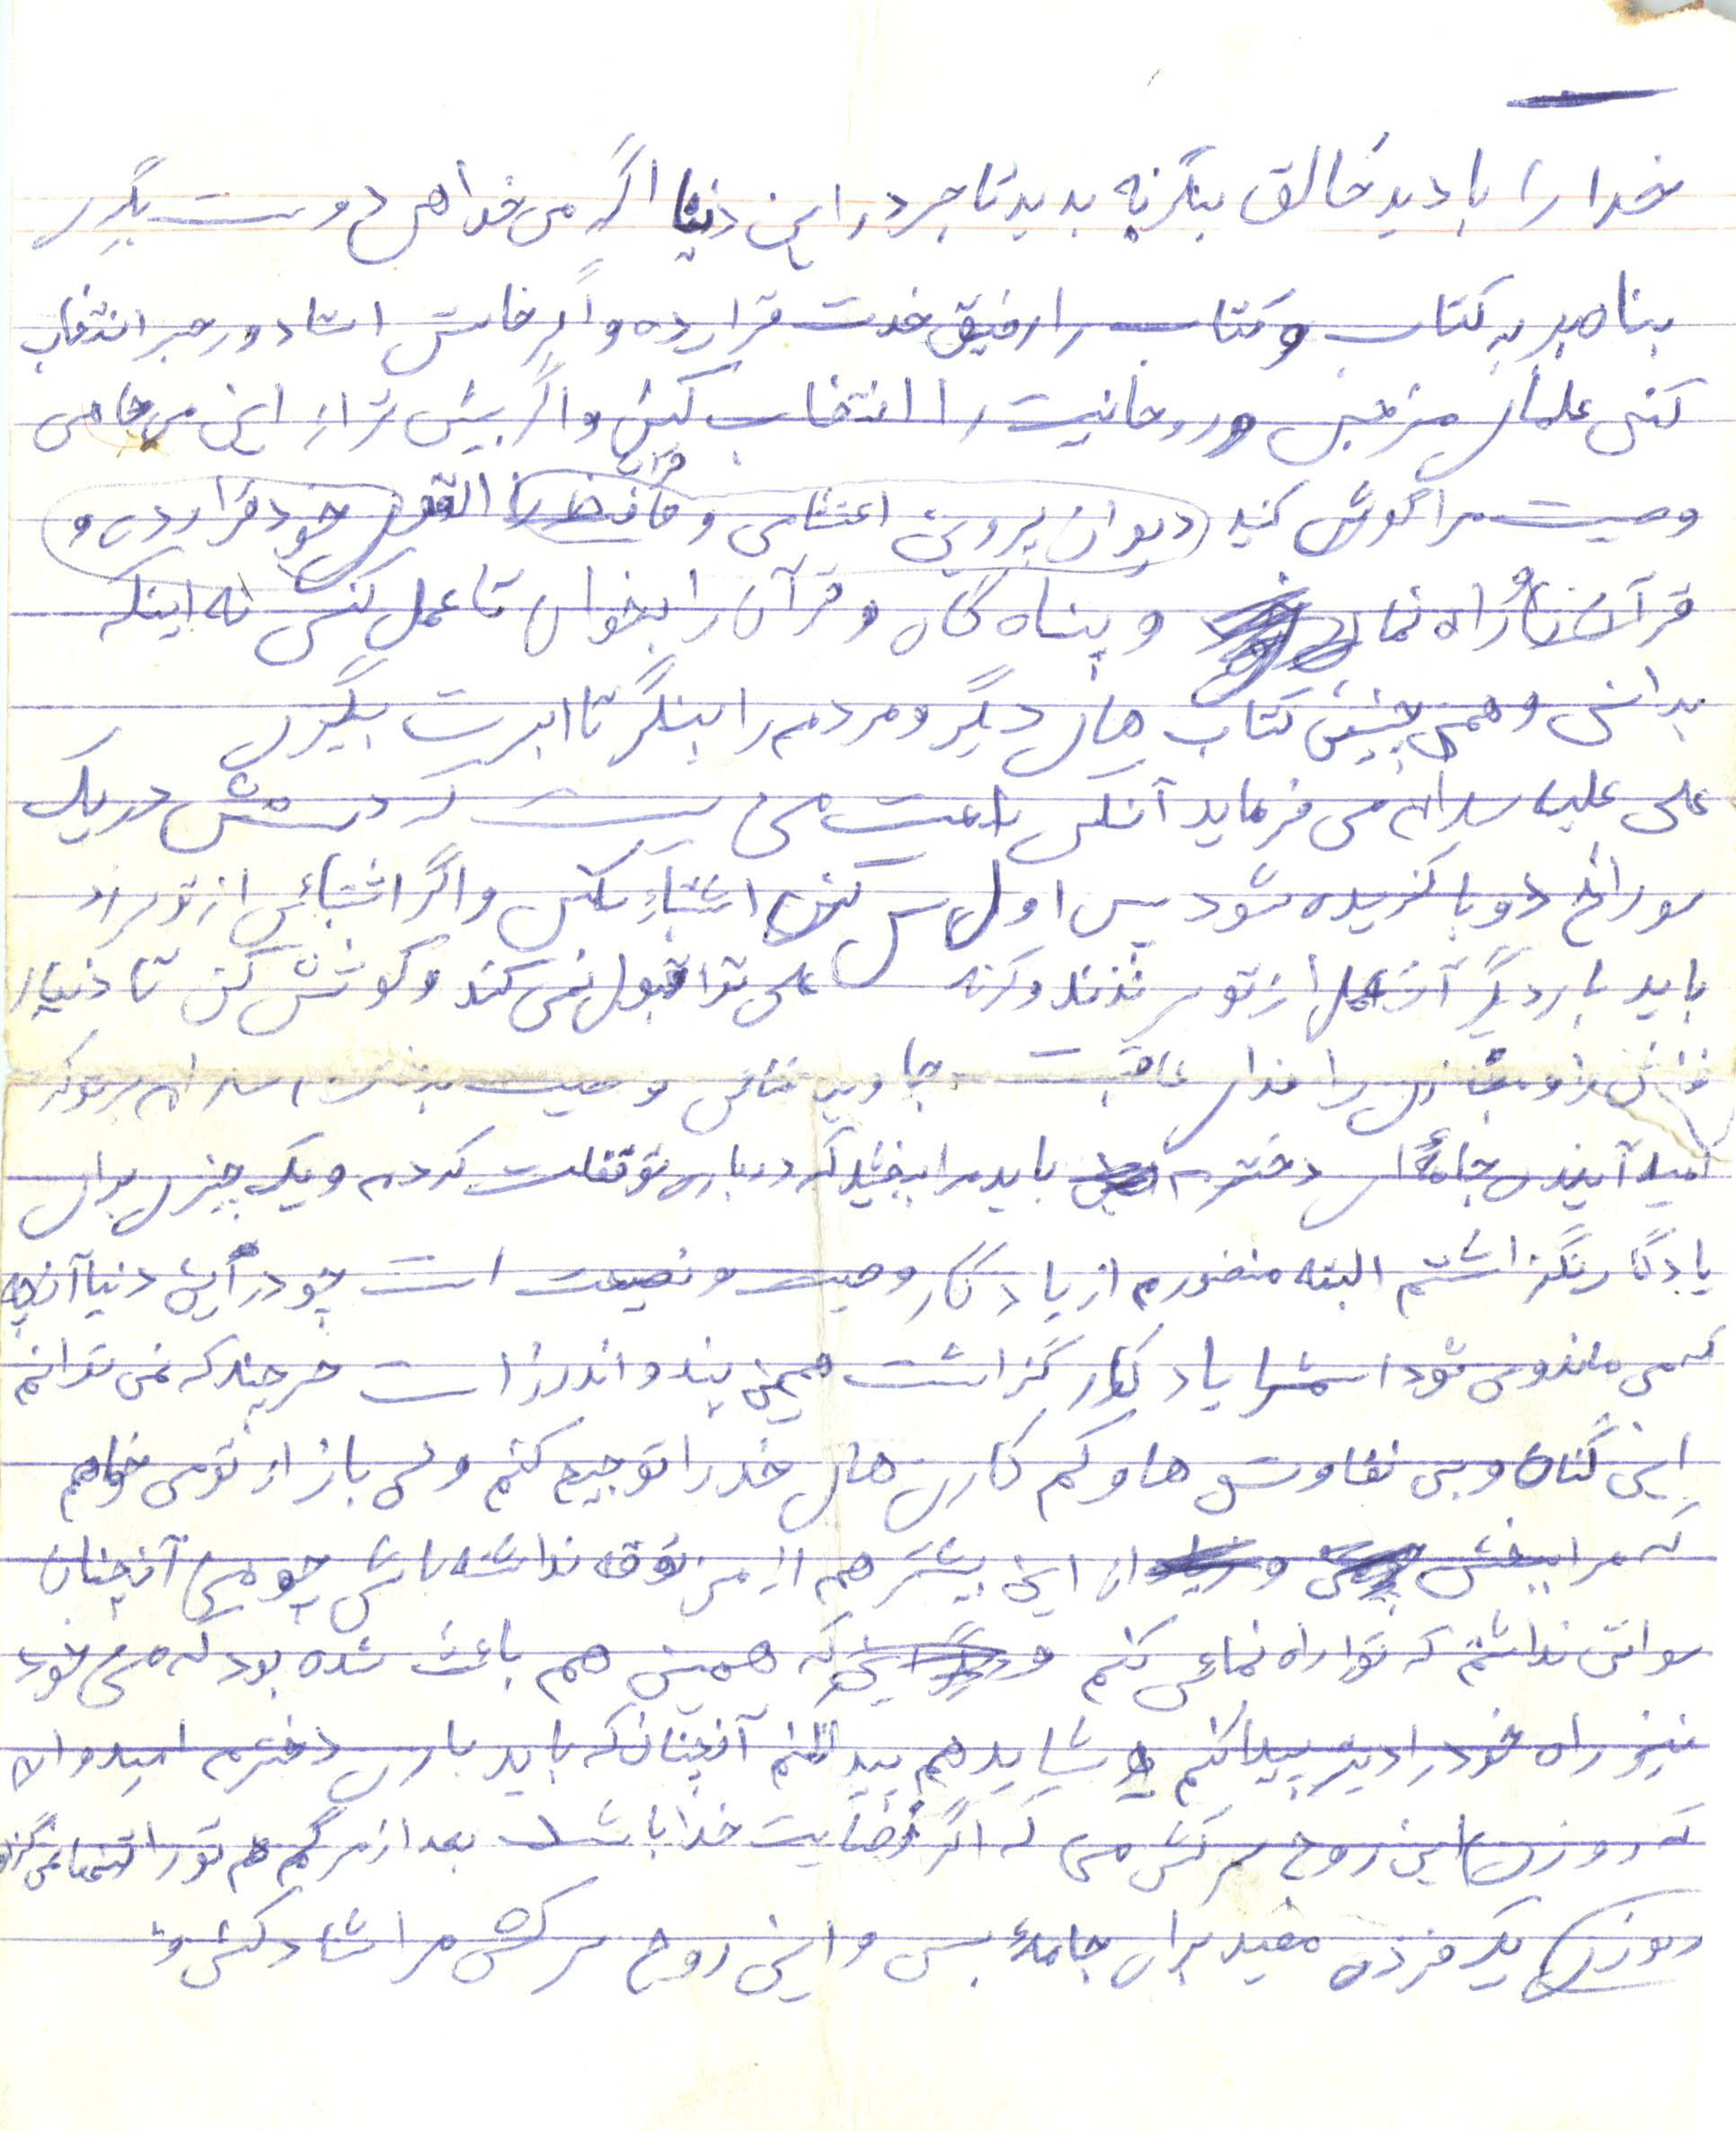 خدا را با دید خالق بنگر نه بدید تاجر در این دنیا اگر می خواهی دوست بگیری
پناه ببر به کتاب و کتاب را رفیق خدت قرار ده و اگر خاستی استاد و رهبر انتخاب
کنی علمای مزهبی و روحانیت را انتخاب کنی و اگر بیش تر از این می خاهی
وصیت مرا گوش کنید دیوان پروین اعتصامی و القعی خود قرار دهی و
قرآن را راه نمای و پناه گاه و قرآن را بخوان تا عمل کنی نه اینکه
بدانی و همی چنین کتاب های دیگر و مردم را بنگر تا ابرت بگیری
علی علیه سلام می فرماید آنکس باعت من نیست که دستش در یک
سوراخ دو با گزیده شود پس اول سی کن اشتباه نکنی و اگر اشتبائی از تو سر زد
باید بار دیگر آن عمل از تو سر نزند وگرنه علی ترا قبول نمی کند و کوشش کن تا دنیا را
را فدای عاقبت جاوید وصیت به دخترم سلام بر تو که
امید آیندی جامٔه ای دخترم باید مرا ببخشید که درباره تو قفلت کردم و یک چیزی برای
یادگار نگزاشتم البته منضورم از یادگار وصیت و نصیحت است چو در این دنیا آنچه
که می ماند و می شود اسمش را یاد گار گزاشت همین پند و اندرز است هر چند که نمی توانم
این گناه و بی تفاوتی ها و کم کاری های خود را توجیح کنم ولی باز از تو می خواهم
که مرا ببخشی و از این بیشتر هم از من توقه نداشته باشی چو من آنچنان
سواتی نداشتم که تو را راه نمایی کنم که همین هم باعث شده بود که من خود
نیز راه خود را دیر پیدا کنم و شاید هم پیدا نکنم آنچنان که باید باری دخترم امیدوارم
که روزی این روح سرکش من که اگر رضایت خدا باشد بعد از مرگم هم تو را تنها نمی گزارد
روزی یک فردی مفید برای جامعٔه بسی و این روح سرکش مرا شاد کنی و